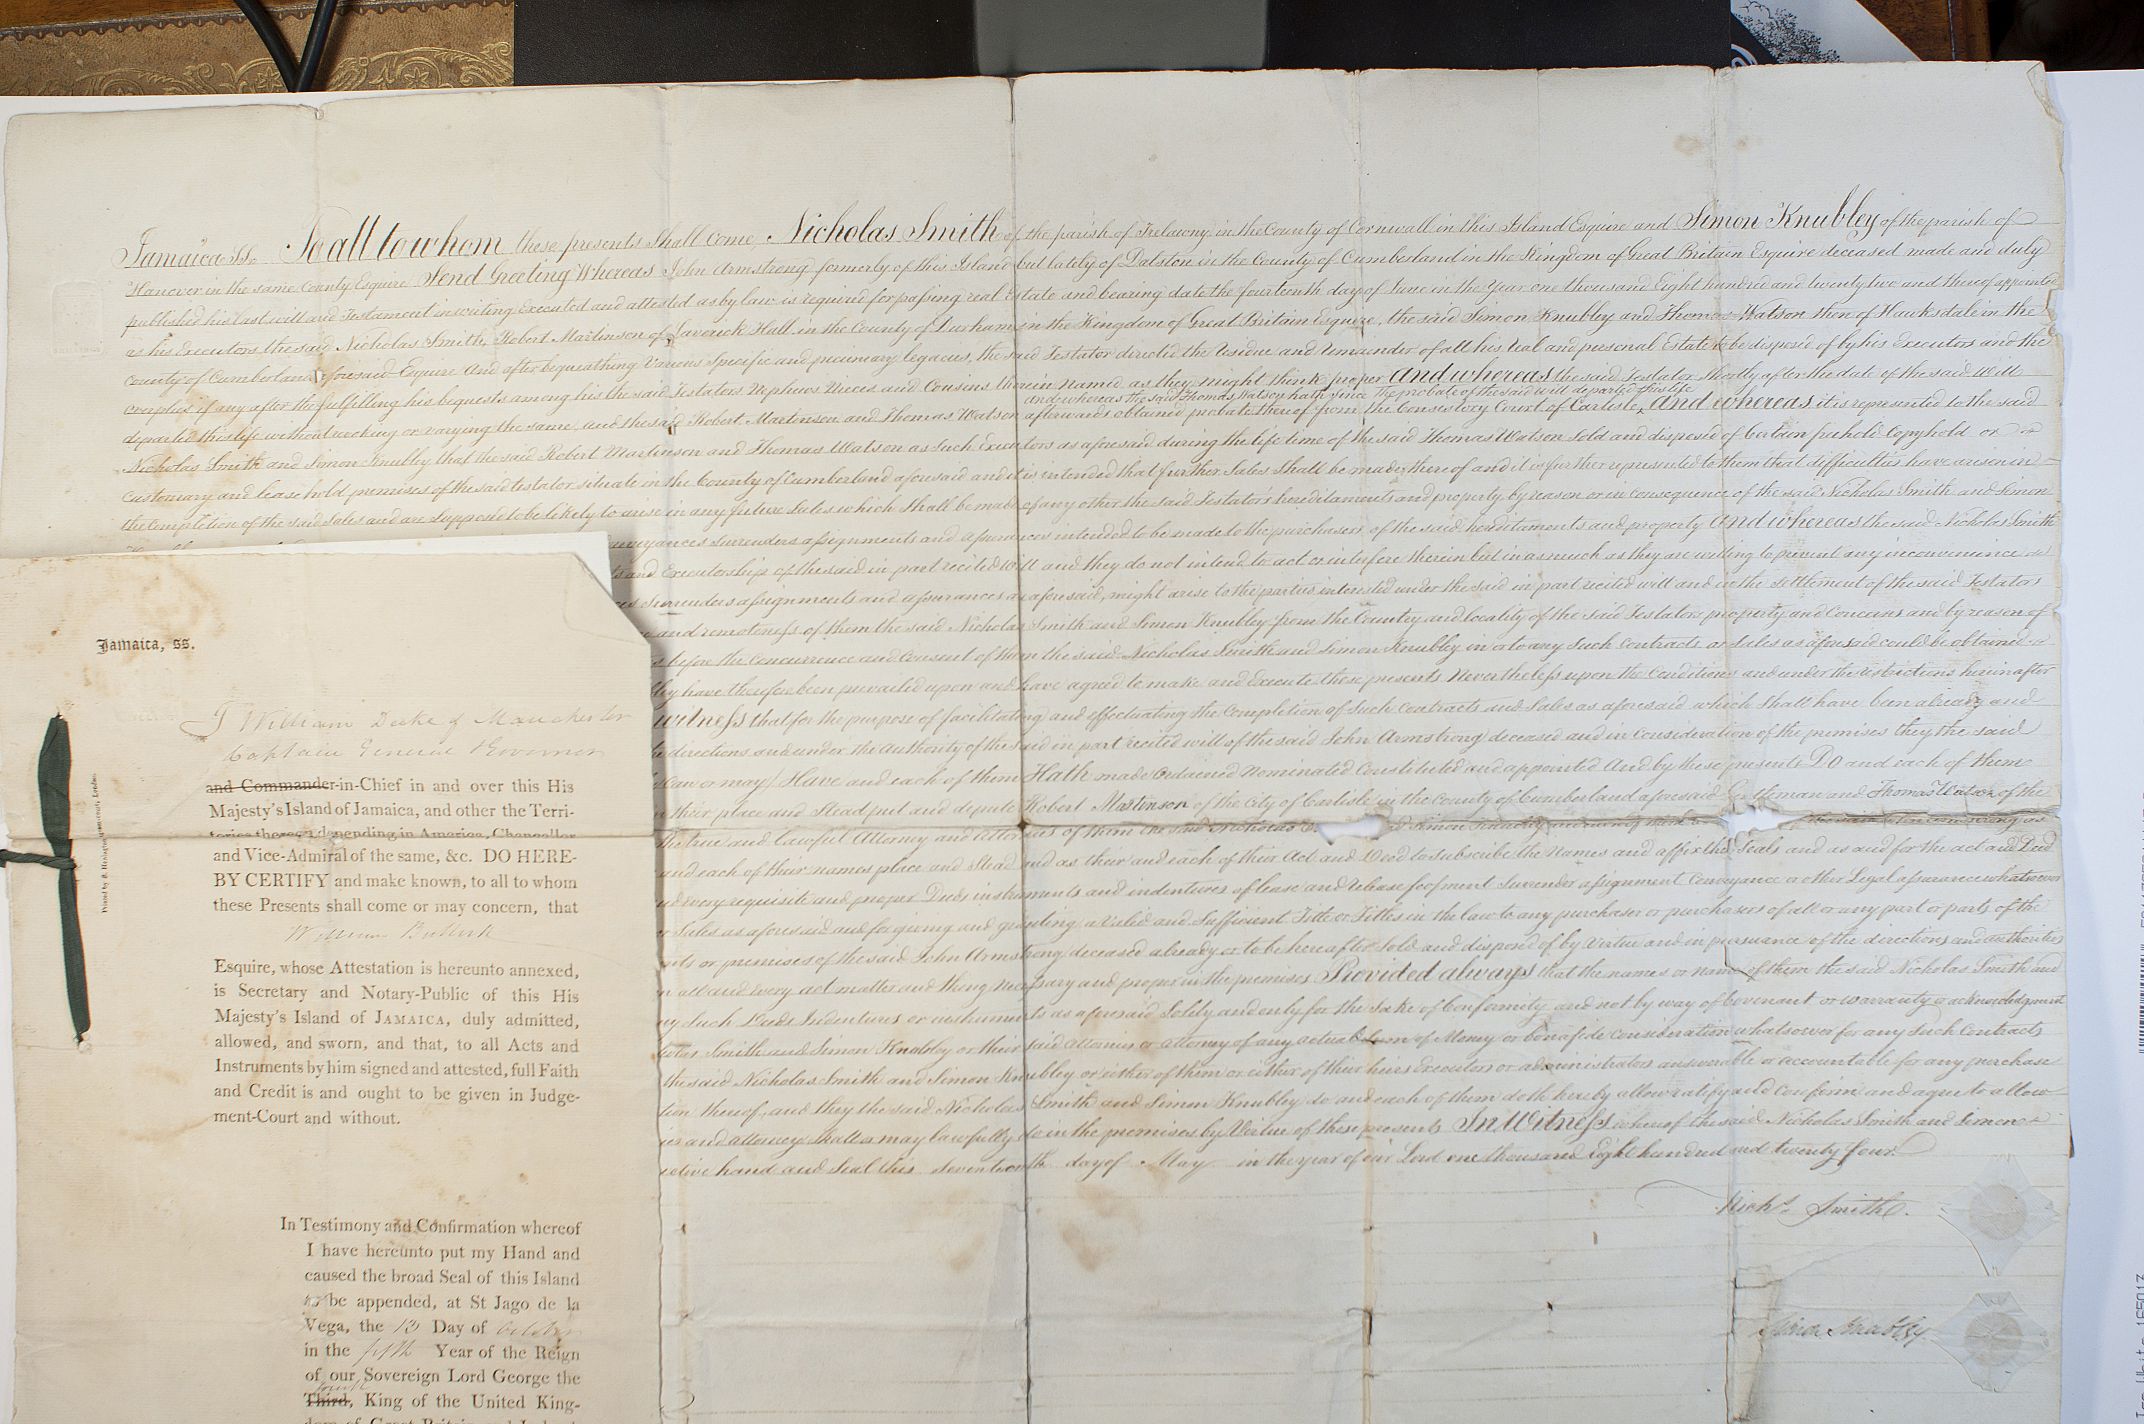 Jamaica SS. To all to whom these presents Shall Come Nicholas Smith of the parish of Trelawny in the County of Cornwall in this Island Esquire and Simon Knubley of the parish of
Hanover in the same County Esquire Send Greeting Whereas John Armstrong formerly of this Island but lately of Dalston in the County of Cumberland in the Kingdom of Great Britain Esquire deceased made and duly
published his last will and Testament in writing Executed and attested as by law is required for passing real Estate and bearing date the fourteenth day of June in the Year one thousand Eight hundred and twenty two and thereof appointed
as his Executors the said Nicholas Smith, Robert Martinson of Laverick Hall in the County of Durham in the Kingdom of Great Britain Esquire, the said Simon Knubley and Thomas Watson then of Hawksdale in the
County of Cumberland aforesaid Esquire And after bequeathing Various Specific and pecuniary legacies, the said Testator directed the residue and remainder of all his real and personal Estate to be disposed of by his Executors and the
overplus if any after the fulfilling his bequests among his the said Testators Nephews Neices and Cousins therein named as they might think proper And whereas the said Testator Shortly after the date of the said Will
and whereas the said Thomas Watson hath since the probate of the said will departed this life
departed this life without revoking or varying the same and the said Robert Martinson and Thomas Watson afterwards obtained probate thereof from the Consistory Court of Carlisle, And whereas it is represented to the said
Nicholas Smith and Simon Knubley that the said Robert Martinson and Thomas Watson as Such Executors as aforesaid during the life time of the said Thomas Watson Sold and disposed of Certain freehold Copyhold or
Customary and leasehold premises of the said testator situate in the County of Cumberland aforesaid and it is intended that further Sales Shall be made thereof and it is further represented to them that difficulties have arisen in
the Completion of the said Sales and are Supposed to be likely to arise in any future Sales which Shall be made of any other the said Testator's hereditaments and property by reason or in consequence of the said Nicholas Smith and Simon
Conveyances Surrenders assignments and assurances intended to be made to the purchasers of the said hereditaments and property And whereas the said Nicholas Smith
and Executorship of the said in part recited Will and they do not intend to act or interfere therein but in as much as they are willing to prevent any inconvenience
Surrenders assignments and assurances as aforesaid, might arise to the parties interested under the said in part recited will and in the settlement of the said Testators
and remoteness of them the said Nicholas Smith and Simon Knubley from the Country and locality of the said Testators property and Concerns and by reason of
before the Concurrence and Consent of them the said Nicholas Smith and Simon Knubley in or to any Such Contracts or Sales as aforesaid could be obtained
have therefore been prevailed upon and have agreed to make and Execute these presents Nevertheless upon the Conditions and under the restrictions herein after
witness that for the purpose of facilitating and effectuating the Completion of Such Contracts and Sales as aforesaid which Shall have been already and
directions and under the Authority of the said in part recited will of the said John Armstrong deceased and in Consideration of the premises they the said
Law or may) Have and each of them Hath made Ordained Nominated Constituted and appointed And by these presents Do and each of them
in their place and Stead put and depute Robert Martinson of the City of Carlisle in the County of Cumberland aforesaid Gentleman and Thomas Watson of the
the true and lawful Attorney and Attornies of them the said Nicholas
and each of their names place and Stead and as their and each of their Act and Deed to Subscribe the Names and affix the Seals and as and for the act and Deed
every requisite and proper Deeds instruments and indentures of lease and release feofment Surrender assignment Conveyance or other Legal assurance whatsoever
or Sales as aforesaid and for giving and granting a Valid and Sufficient Title or Titles in the law to any purchaser or purchasers of all or any part or parts of the
or premises of the said John Armstrong deceased already or to be hereafter Sold and disposed of by Virtue and in pursuance of the directions and authorities
all and every act matter and thing necessary and proper in the premises Provided always that the names or name of them the said Nicholas Smith and
any Such Deeds Indentures or instruments as aforesaid Solely and only for the Sake of Conformity and not by way of Covenant or warranty or acknowledgment
Smith and Simon Knubley or their said Attornies or attorney of any actual Sum of Money or bonafide Consideration whatsoever for any Such Contracts
the said Nicholas Smith and Simon Knubley or either of them or either of their heirs Executors or administrators answerable or accountable for any purchase
thereof, and they the said Nicholas Smith and Simon Knubley do and each of them doth hereby allow ratify and Confirm and agree to allow
and attorney Shall or may lawfully do in the premises by Virtue of these presents In Witness whereof the said Nicholas Smith and Simon
hand and Seal this Seventeenth day of May in the year of our Lord one thousand Eight hundred and twenty four.
Nichs. Smith.
Simon Knubley
Jamaica, ss.
I William Duke of Manchester
Captain General & Governor
and Commander-in-Chief in and over this His
Majesty's Island of Jamaica, and other the Terri-
tories thereon depending in America, Chancellor
and Vice-Admiral of the same, &c. DO HERE-
BY CERTIFY and make known, to all to whom
these Presents shall come or may concern, that
William Bullock
Esquire, whose Attestation is hereunto annexed,
is Secretary and Notary-Public of this His
Majesty's Island of JAMAICA, duly admitted,
allowed, and sworn, and that, to all Acts and
Instruments by him signed and attested, full Faith
and Credit is and ought to be given in Judge-
ment-Court and without.
In Testimony and Confirmation whereof
I have hereunto put my Hand and
caused the broad Seal of this Island
to be appended, at St Jago de la
Vega, the 13 Day of October
in the fifth Year of the Reign
of our Sovereign Lord George the
fourth
Third, King of the United King-